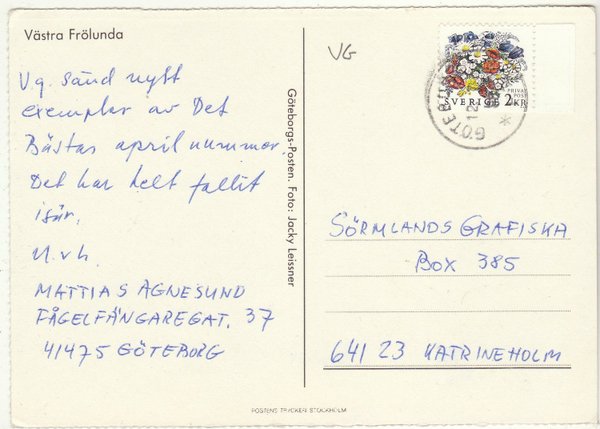 Västra Frölunda
VG
Vg. sänd nytt
exemplar av Det
Bästas aprilnummer.
Det har helt fallit
isär.
M.v.h.
MATTIAS AGNESUND
FÅGELFÄNGAREGAT. 37
41475 GÖTEBORG
Göteborgs-Posten. Foto: Jacky Leissner
PRIVAT
POST
SVERIGE 2 KR
GÖTEBORG
12
SÖRMLANDS GRAFISKA
BOX 385
641 23 KATRINEHOLM
POSTENS TRYCKERI STOCKHOLM